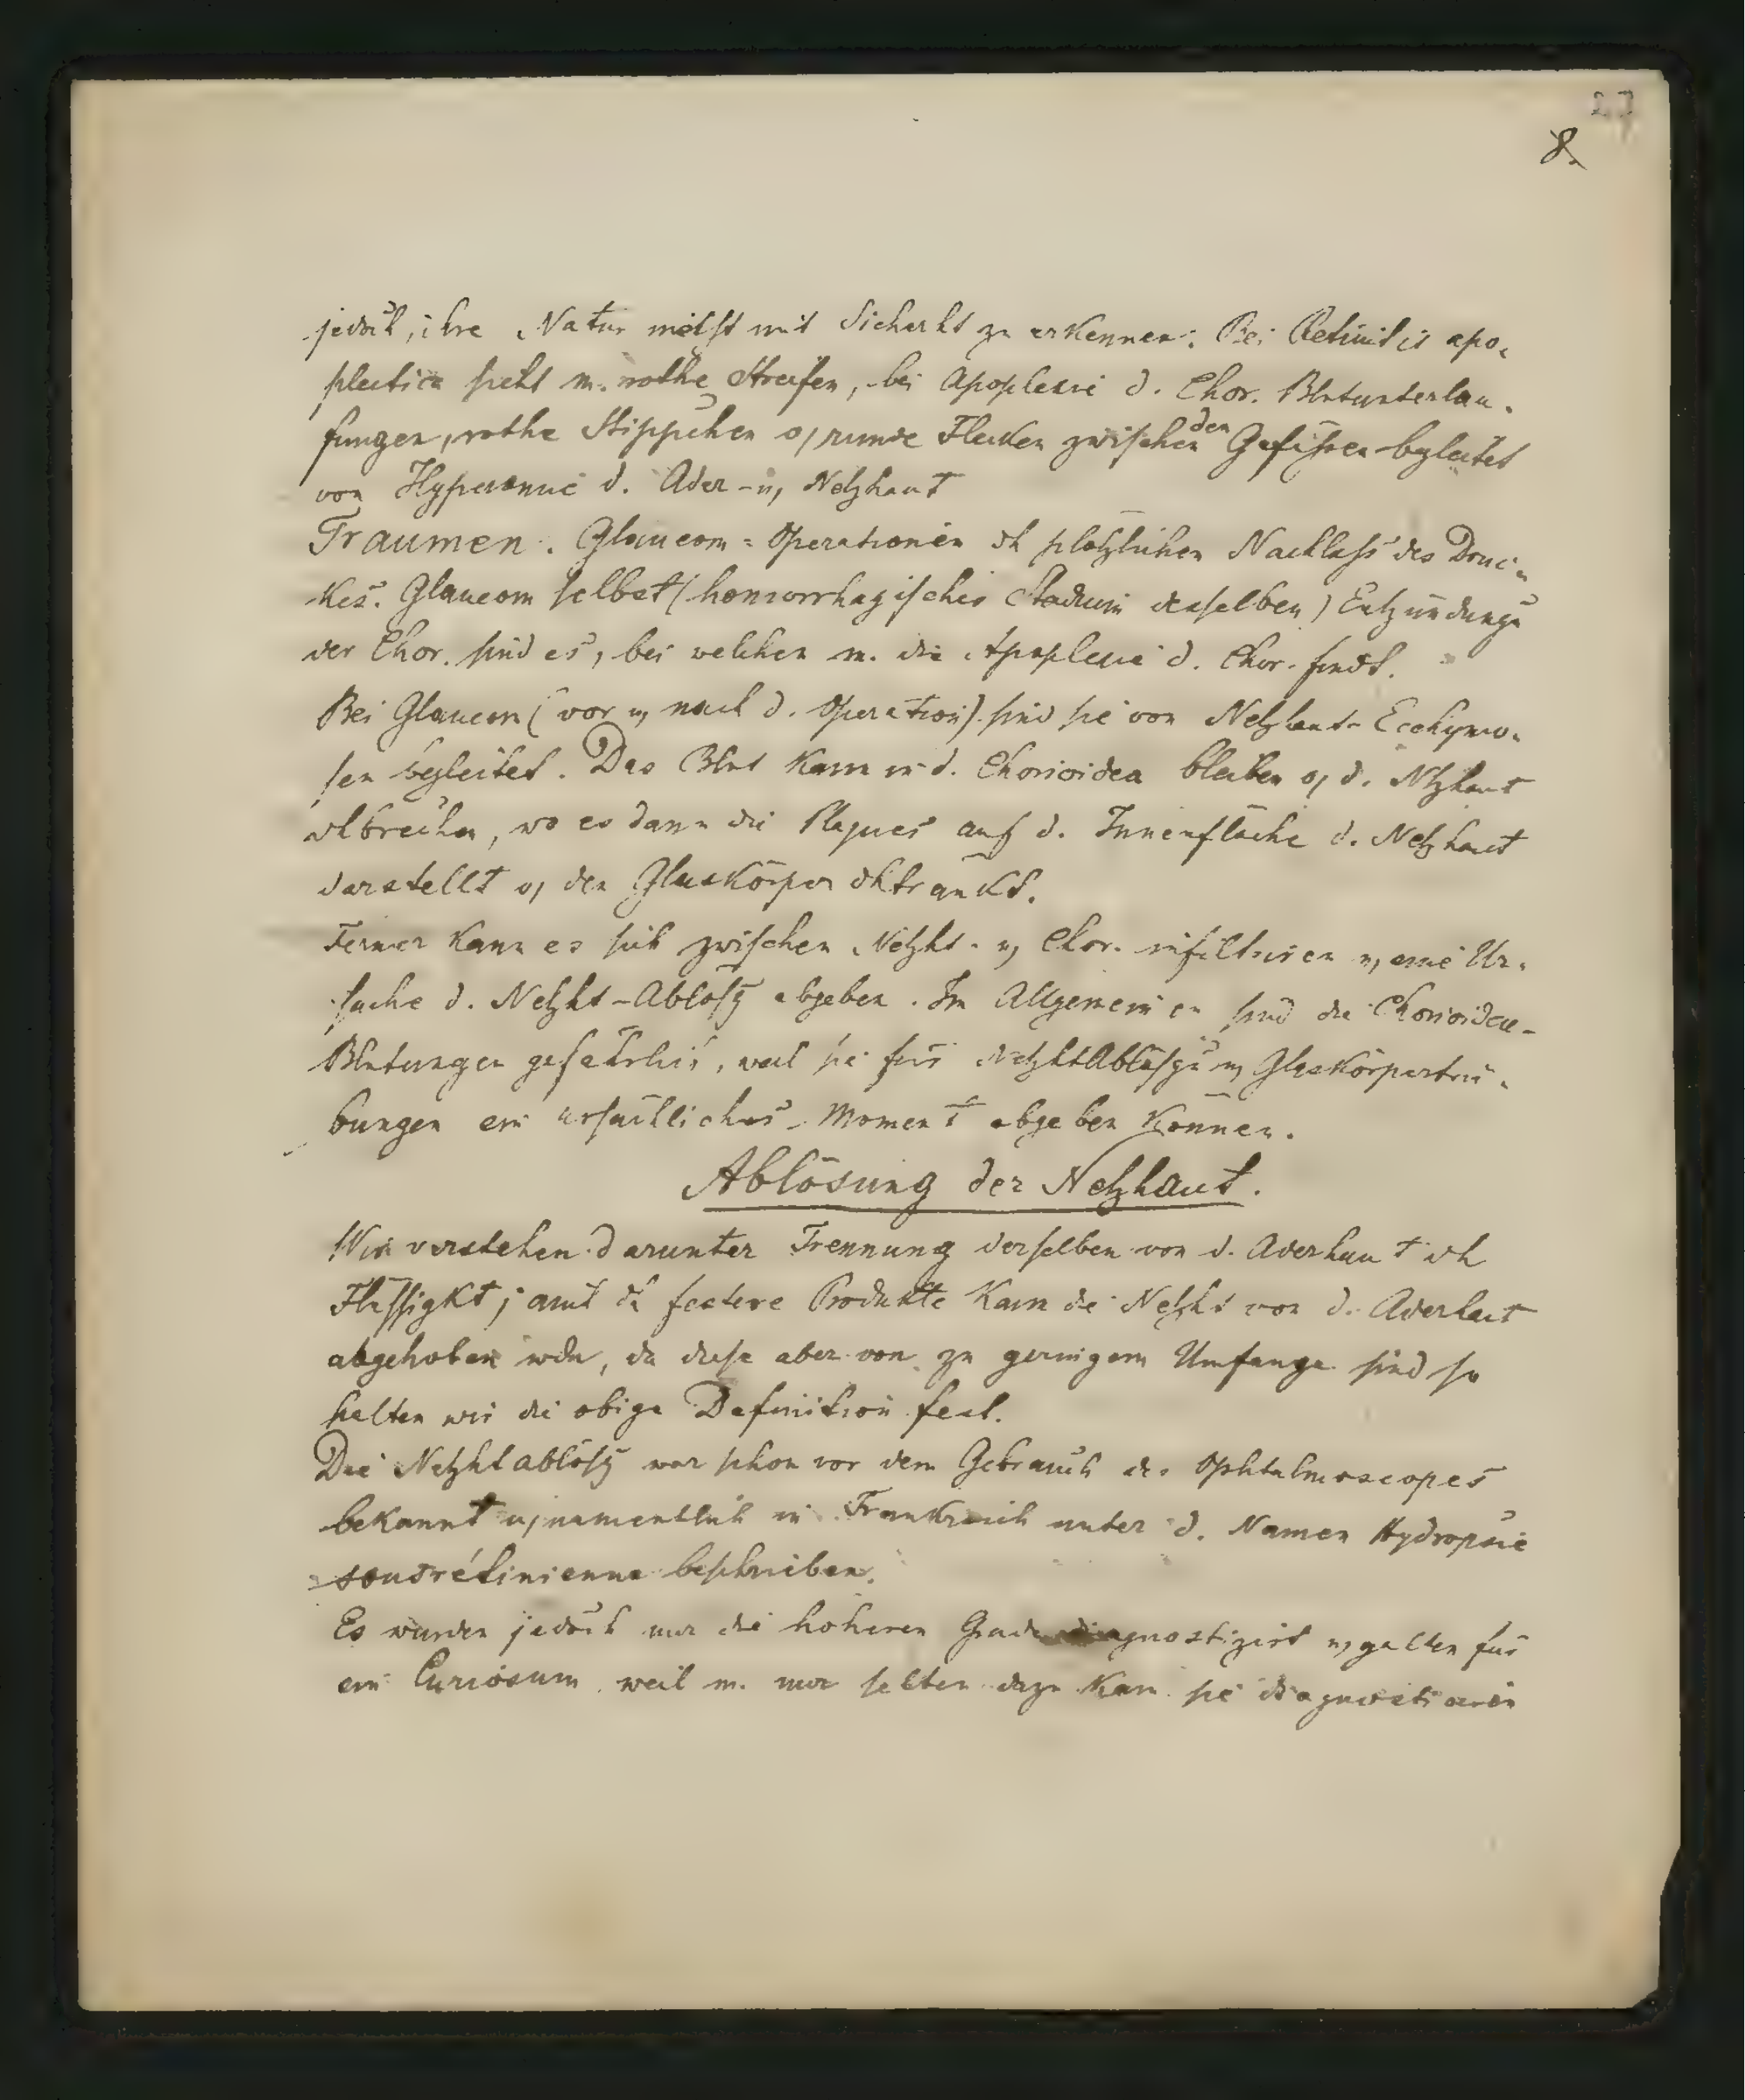 27
8.
jedoch, ihre Natur meist mit Sicherht zu erkennen: Bei Retinitis apo-
plectica sieht m. rothe Streifen, bei Apoplexie d. Chor. Blutunterlau-
fungen, rothe Stippchen o, runde Flecken zwischen den Gefässen begleitet
von Hyperämie d. Ader- u, Netzhaut
Traumen. Glaucom-Operationen dh plötzlichen Nachlass des Druc-
kes. Glaucom selbst (hämorrhagisches Stadium desselben) Entzündungn
der Chor. sind es, bei welchen m. die Apoplexie d. Chor. findt.
Bei Glaucom (vor u, nach d. Operation) sind sie von Netzhaut-Ecchymo-
sen begleitet. Das Blut kann in d. Chorioidea bleiben o, d. Ntzhaut
dhbrechen, wo es dann die Plaques auf d. Innenfläche d. Netzhaut
darstellt o, den Glaskörper dhtränkt.
Ferner kann es sich zwischen Netzht- u, Chor. infiltriren u, eine Ur-
sache d. Netzht-Ablösg abgeben. Im Allgemeinen sind die Chorioideal-
Blutungen gefährlich, weil sie für NetzhtAblösgn u, Glaskörpertrü-
bungen ein ursächliches Moment abgeben können.
Ablösung der Netzhaut.
Wir verstehen darunter Trennung derselben von d. Aderhaut dh
Flüssigkt; auch dh festere Produkte kann die Netzht von d. Aderhaut
abgehoben wdn, da diese aber von zu geringem Umfange sind so
halten wir die obige Definition fest.
Die Netzhtablösg war schon vor dem Gebrauch des Ophtalmoscopes
bekannt u, namentlich in Frankreich unter d. Namen Hydropsie
sousrétinienne beschrieben.
Es wurden jedoch nur die höheren Grade diagnostizirt u, galten für
ein Curiosum weil m. nur selten dazu kam sie diagnostiziren